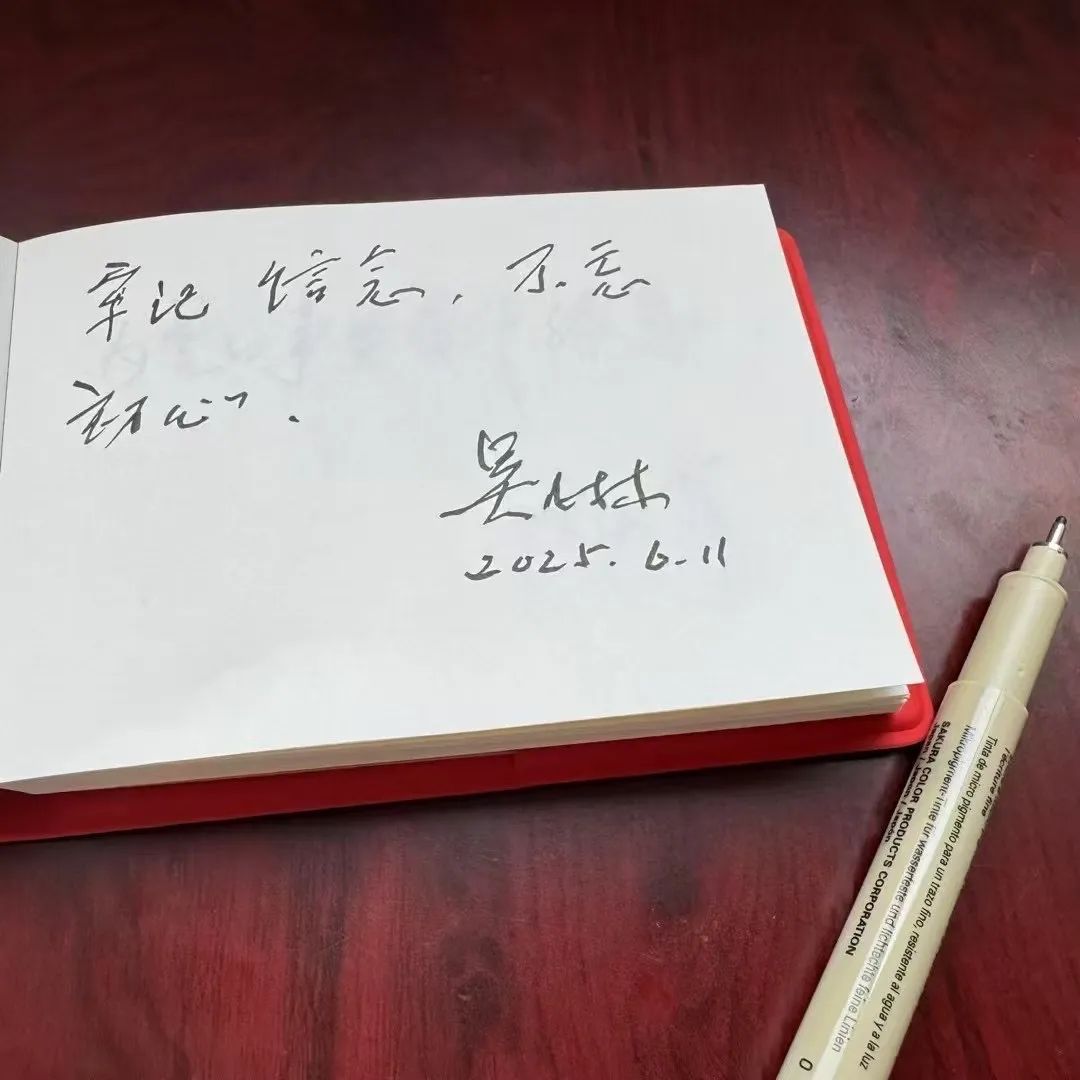 牢记信念，不忘
初心.
吴
2025.6.11
SAKURA COLOR PRODUCTS CORPORATION
Japan / Japon / Japón
Mikropigment-Tinte für wasserfeste und lichtechte feine Linien
Tinta de micro pigmento para un trazo fino, resistente al agua y a la luz
l'écriture fine
0